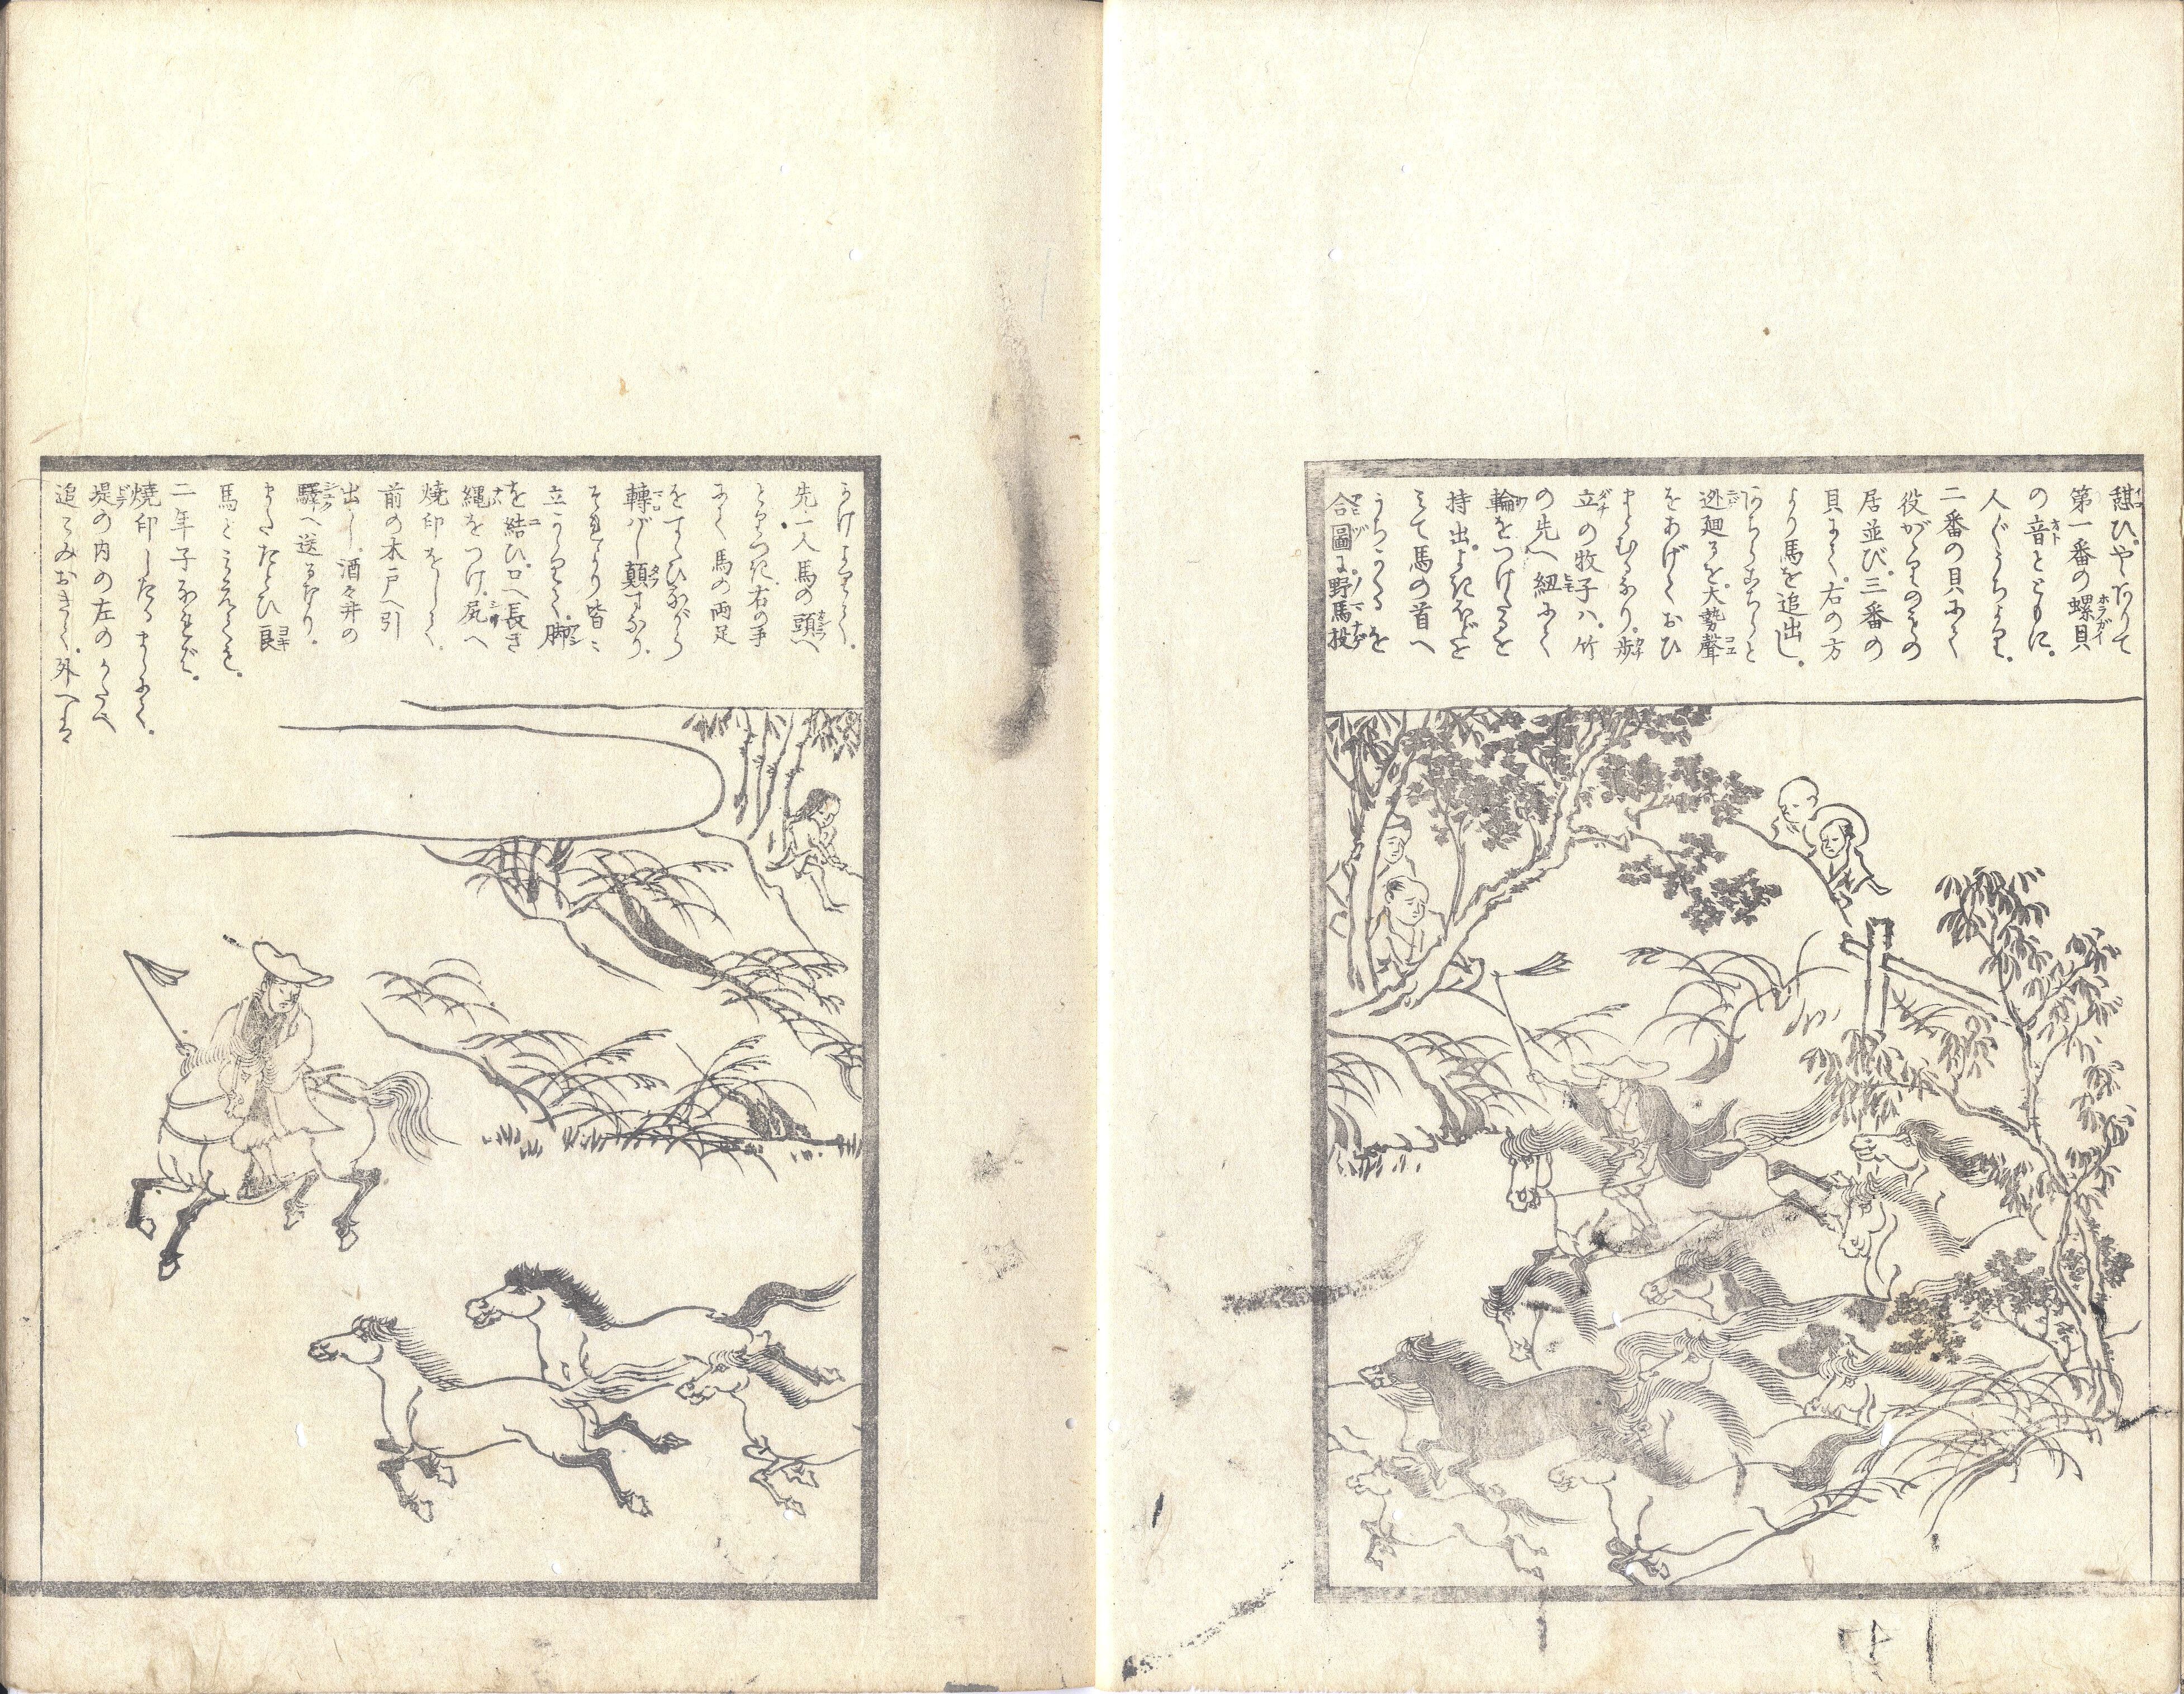 憩ひ。やゝありて
第一番の螺貝
の音とともに。
人ぐうちより。
二番の貝にて
役がかりのもの
居並び。三番の
貝にて。右の方
より馬を追出し。
あちらこちらと
迯廻るを。大勢聲
をあげておひ
まはむるなり。歩
立の牧子ハ。竹
の先へ紐にて
輪をつけたるを
持出。よきほどを
見て馬の首へ
うちかくるを
合圖に。野馬投
かけよりて。
先一人馬の頭へ
とりつき。右の手
にて馬の両足
をすくひながら
轉バし顛すなり。
それより皆ミ
立かゝりて。脚
を結ひ。口へ長き
縄をつけ。尻へ
焼印をして。
前の木戸へ引
出し。酒々井の
驛へ送るなり。
またたとひ良
馬と見ゆるも。
二年子なれば。
焼印したるまゝにて。
堤の内の左のかたへ
追こみおきて。外へは